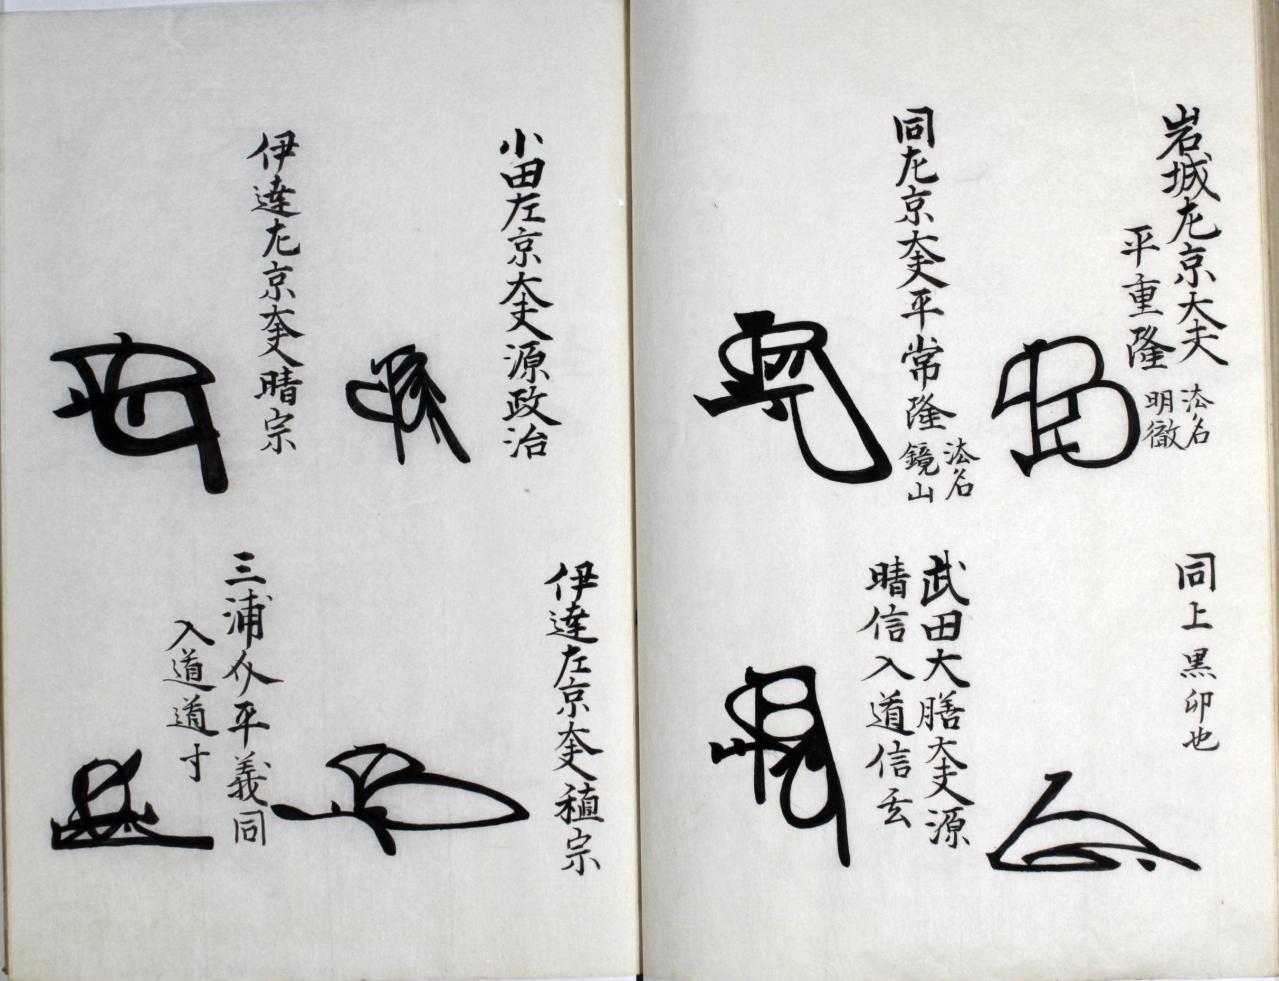 岩城左京大夫
平重隆
法名
明徹
同上黒卯也
同左京大夫平常隆
法名
鏡山
武田大膳大夫源
晴信入道信玄
小田左京大夫源政治
伊達左京大夫稙宗
伊達左京大夫晴宗
三浦介平義同
入道道寸